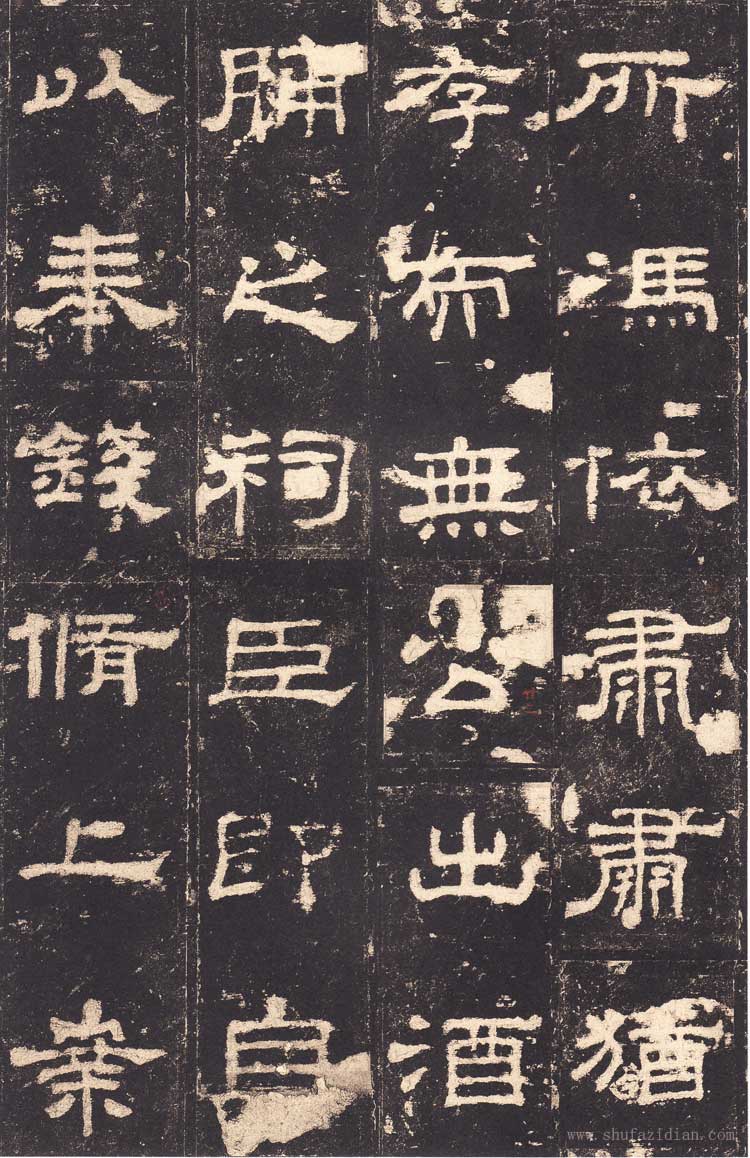 所馮依肅肅猶
存而無公出酒
脯之祠臣即自
以奉錢脩上案
www.shufazidian.com